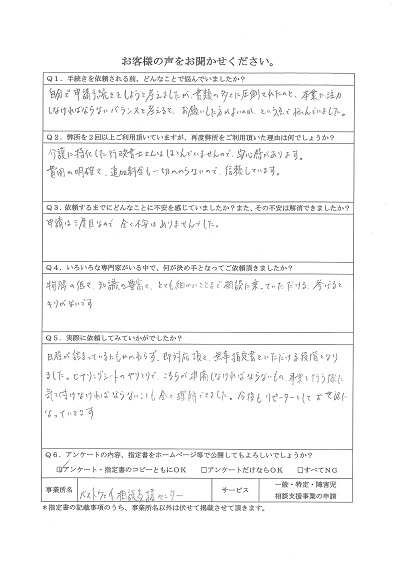 お客様の声をお聞かせください。
Q1．手続きを依頼される前、どんなことで悩んでいましたか？
自分で申請手続きをしようと考えましたが、書類の多さに圧倒されたのと、本業に注力
しなければならないバランスを考えると、お願いした方がよいのか、という点で悩んでいました。
Q2．弊所を2回以上ご利用頂いていますが、再度弊所をご利用頂いた理由は何でしょうか？
介護に特化した行政書士さんはほとんどいませんので、安心感があります。
費用の明確さ、追加料金も一切かからないので、信頼しています。
Q3．依頼するまでにどんなことに不安を感じていましたか？また、その不安は解消できましたか？
申請は三度目なので 全く不安はありませんでした。
Q4．いろいろな専門家がいる中で、何が決め手となってご依頼頂きましたか？
物腰の低さ、知識の豊富さ、とても細かいことまで相談に乗っていただける、挙げると
キリがないです
Q5．実際に依頼してみていかがでしたか？
日程が詰まっているにもかかわらず、即対応頂き、無事指定書をいただける段階となり
ました。ヒヤリングシートのやりとりで、こちらが準備しなければならないもの、事業を行う際に
気を付けなければならないことも全て理解できました。今後もリピーターとしてお世話に
なっていきます
Q6．アンケートの内容、指定書をホームページ等で公開してもよろしいでしょうか？
☑アンケート・指定書のコピーともにOK □アンケートだけならOK □すべてNG
事業所名 ベストウェイ相談支援センター サービス 一般・特定・障害児
相談支援事業の申請
＊指定書の記載事項のうち、事業所名以外は伏せて掲載させて頂きます。